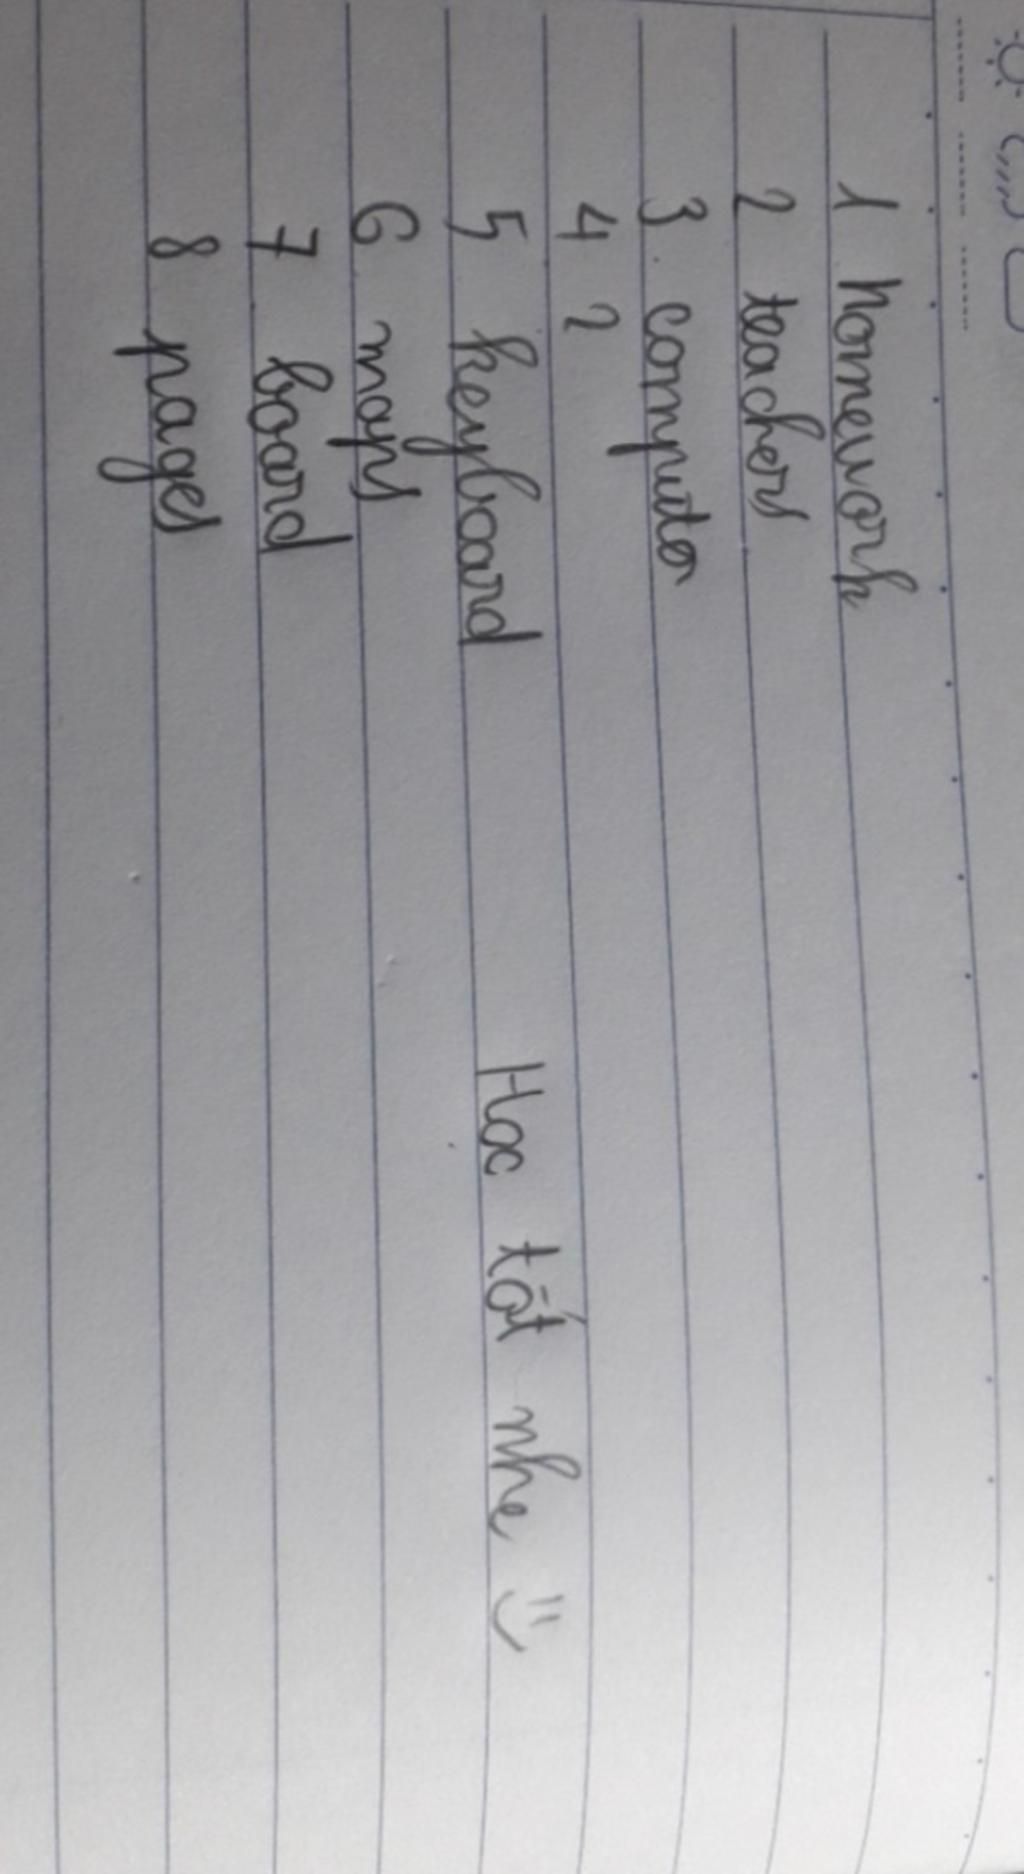 1 homework
2 teachers
3. computer
4 ?
5 keyboard
6 maps
7 board
8 pages
Hoc tốt nhe